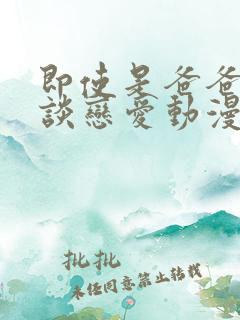 即使是爸爸
談戀愛動漫
批批
未經同意禁止轉載